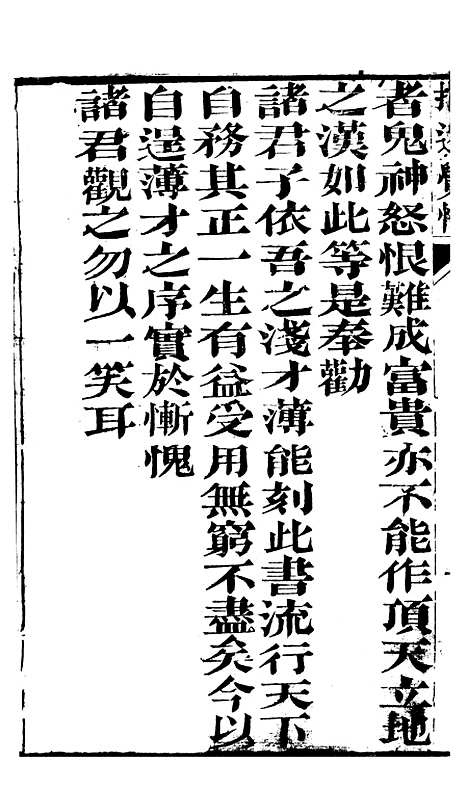 者鬼神怒恨難成富貴亦不能作頂天立地
之漢如此等是奉勸
諸君子依吾之淺才薄能刻此書流行天下
自務其正一生有益受用無窮不盡矣今以
自逞薄才之序實於慚愧
諸君觀之勿以一笑耳